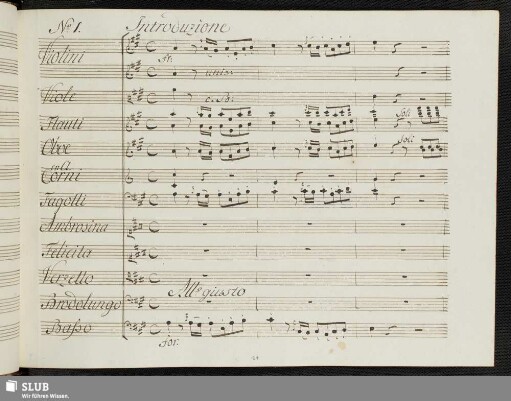 No. 1. Introduzione
Violini
for.
unis:
Viole
c. B:
Flauti
Soli
Oboe
Soli
Corni
Fagotti
Ambrosina
Felicita
Verzetto
All.o giusto
Brodolungo
Basso
for.
SLUB
Wir führen Wissen.